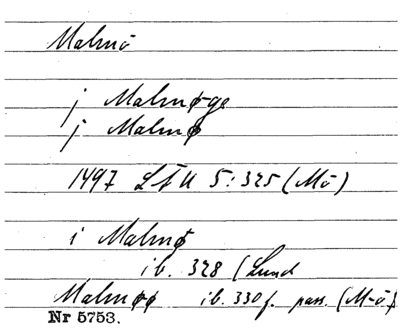 Malmö
j Malmøge
j Malmø
1497 LÅU 5:325 (Mö)
i Malmø
ib. 328 (Lund
Malmøø ib. 330 f. pass. (M-ö)
Nr 5753.